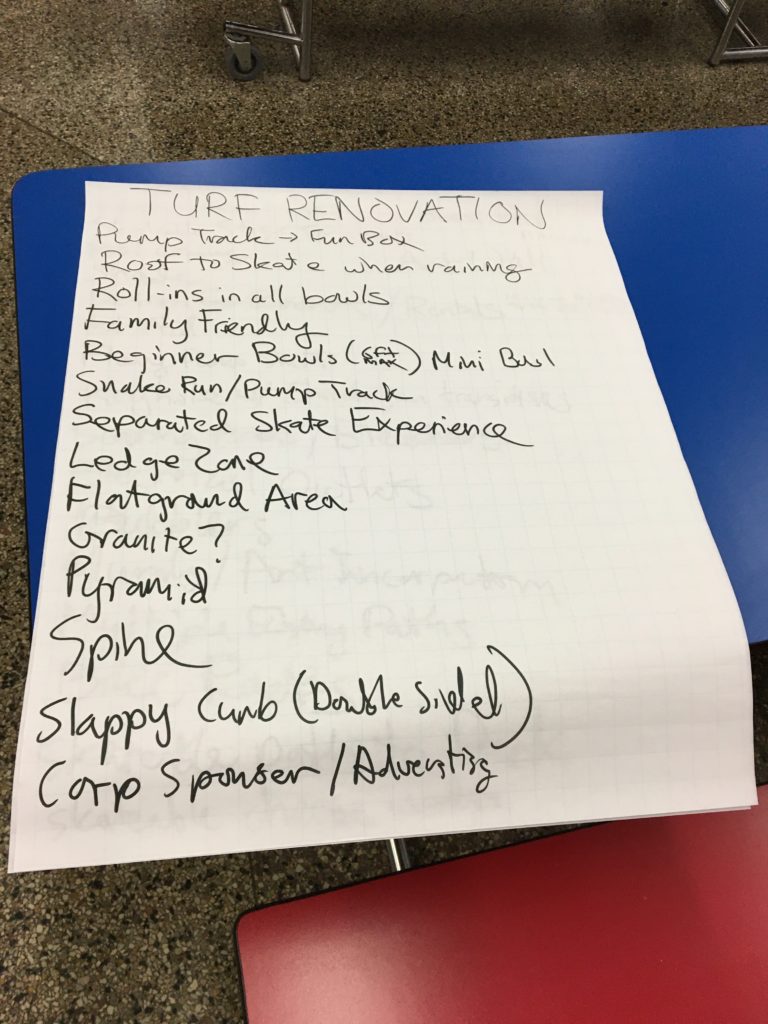 TURF RENOVATION
Pump Track → Fun Box
Roof to Skate when raining
Roll-ins in all bowls
Family Friendly
Beginner Bowls (6FT MAX) Mini Bowl
Snake Run/Pump Track
Separated Skate Experience
Ledge Zone
Flatground Area
Granite?
Pyramid
Spine
Slappy Curb (Double Sided)
Corp Sponser/Advertising